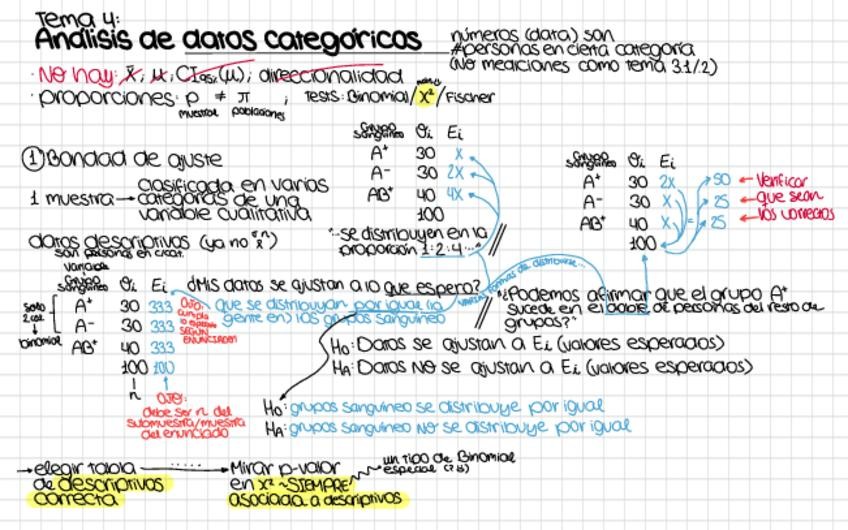 Tema 4:
Análisis de datos categóricos
números (data) son
#personas en cierta categoría
(No mediciones como tema 3.1/2)
· No hay: x̄, μ, CI95%(μ), direccionalidad
· proporciones: p ≠ π ; Tests: Binomial/χ²/Fischer
muestral poblaciones
① Bondad de ajuste
1 muestra → clasificada en varias
categorías de una
variable cualitativa
Grupo sanguíneo Oi Ei
A+ 30 X
A- 30 2X
AB+ 40 4X
100
"-se distribuyen en la
proporción 1:2:4..."
Grupo sanguíneo Oi Ei
A+ 30 2X
A- 30 X
AB+ 40 X
100
50 ← Verificar
25 ← que sean
25 ← los correctos
datos descriptivos (ya no x̄)
son personas en cat.
variable
Grupo sanguíneo Oi Ei
A+ 30 333
A- 30 333
AB+ 40 333
100 100
solo
2 cat.
↓
binomial
n
OJO:
cumpla
lo esperado
SEGÚN
ENUNCIADO!
OJO:
debe ser n del
submuestra/muestra
del enunciado
¿Mis datos se ajustan a lo que espero?
que se distribuyan por igual (la
gente en) los grupos sanguíneo
varias formas de distribuirse...
"¿Podemos afirmar que el grupo A+
sucede en el doble de personas del resto de
grupos?"
H0: Datos se ajustan a Ei (valores esperados)
HA: Datos NO se ajustan a Ei (valores esperados)
H0: grupos sanguíneo se distribuye por igual
HA: grupos sanguíneo NO se distribuye por igual
→ elegir tabla
de descriptivos
correcta
→ Mirar p-valor
en χ² ~SIEMPRE
asociada a descriptivos
un tipo de Binomial
especial